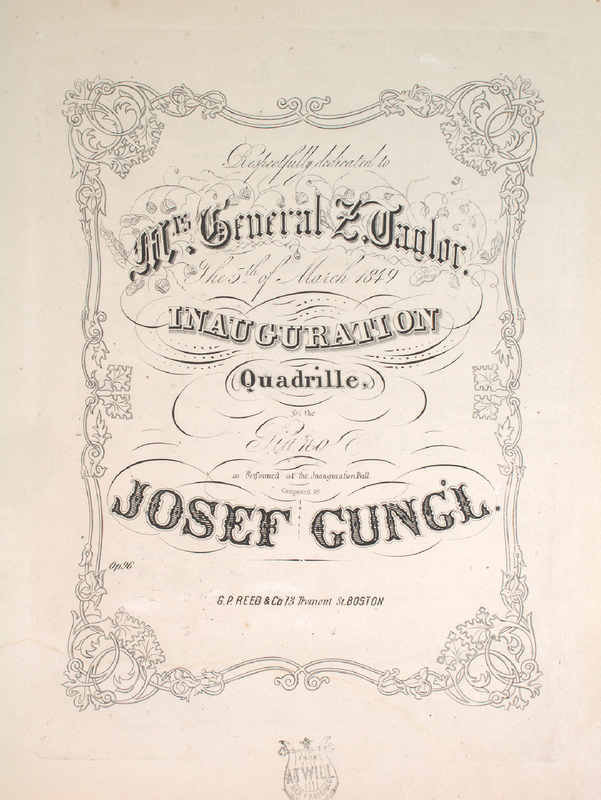 Respectfully dedicated to
Mrs. General Z. Taylor.
The 5th of March 1849
INAUGURATION
Quadrille,
for the
Piano
as Performed at the Inauguration Ball
Composed by
JOSEF GUNG'L.
Op 96
G. P. REED & Co 73 Tremont St. BOSTON
ATWILL